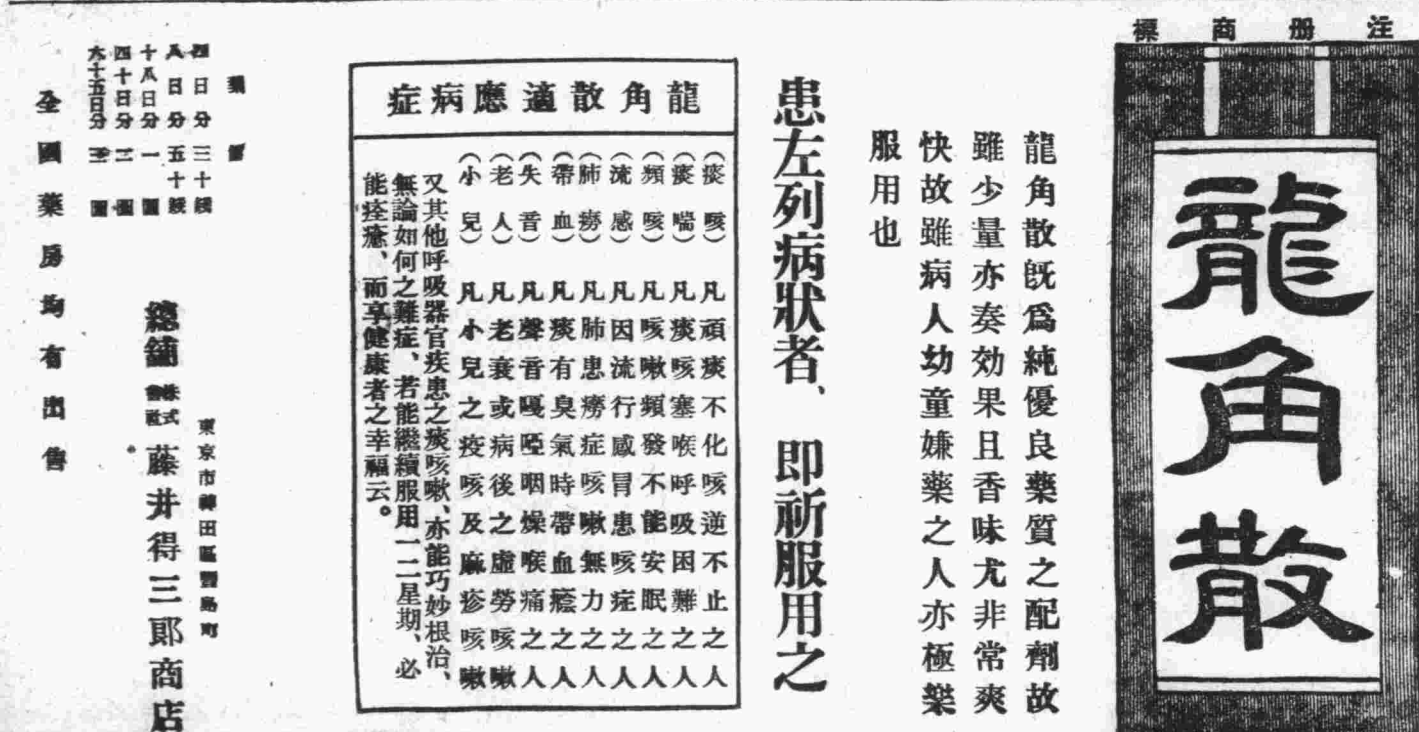 注册商標
龍角散
龍角散既爲純優良藥質之配劑故
雖少量亦奏効果且香味尤非常爽
快故雖病人幼童嫌藥之人亦極樂
服用也
患左列病狀者、即祈服用之
龍角散適應病症
(痰咳)凡頑痰不化咳逆不止之人
(痰喘)凡痰咳塞喉呼吸困難之人
(頻咳)凡咳嗽頻發不能安眠之人
(流感)凡因流行感冒患咳症之人
(肺癆)凡肺患癆症咳嗽無力之人
(帶血)凡痰有臭氣時帶血癊之人
(失音)凡聲音嘎啞咽燥喉痛之人
(老人)凡老衰或病後之虛勞咳嗽
(小兒)凡小兒之疫咳及麻疹咳嗽
又其他呼吸器官疾患之痰咳嗽、亦能巧妙根治、
無論如何之難症、若能繼續服用一二星期、必
能痊癒、而享健康者之幸福云。
藥價
四日分 三十錢
八日分 五十錢
十八日分 一圓
四十日分 二圓
六十五日分 三圓
東京市神田區豐島町
總舖 株式會社 藤井得三郎商店
全國藥房均有出售